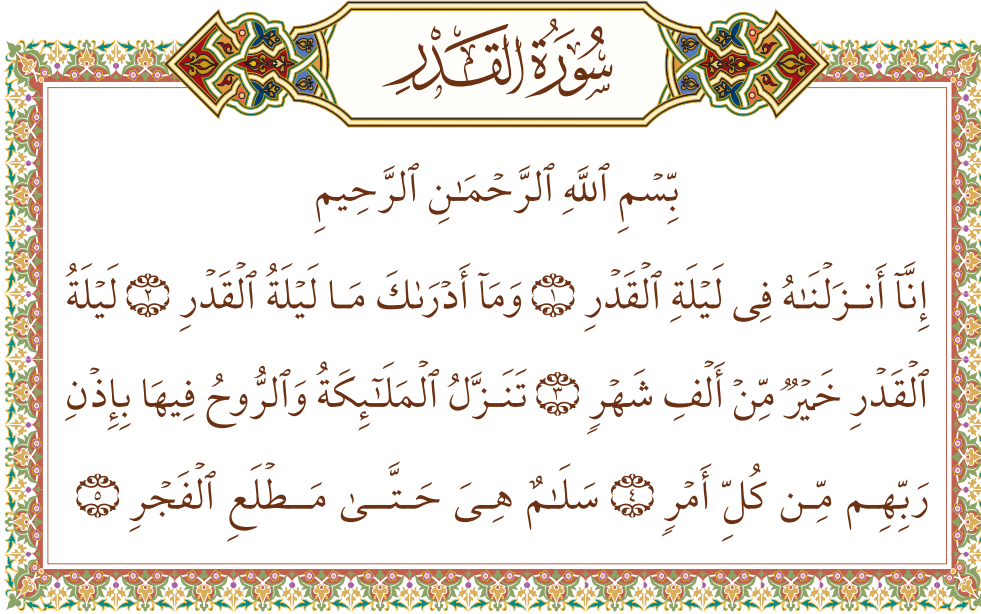 سُورَةُ القَدْرِ
بِّسۡمِ ٱللَّهِ ٱلرَّحۡمَـٰنِ ٱلرَّحِيمِ
إِنَّآ أَنـزَلۡنَـٰهُ فِى لَيۡلَةِ ٱلۡقَدۡرِ ﴿١﴾ وَمَآ أَدۡرَىٰكَ مَـا لَيۡلَةُ ٱلۡقَدۡرِ ﴿٢﴾ لَيۡلَةُ
ٱلۡقَدۡرِ خَيۡرٌ مِّنۡ أَلۡفِ شَهۡرٍ ﴿٣﴾ تَنَـزَّلُ ٱلۡمَلَـٰٓئِكَةُ وَٱلرُّوحُ فِيهَا بِإِذۡنِ
رَبِّهِـم مِّـن كُلِّ أَمۡرٍ ﴿٤﴾ سَلَـٰمٌ هِـىَ حَـتَّـىٰ مَـطۡلَعِ ٱلۡفَجۡرِ ﴿٥﴾